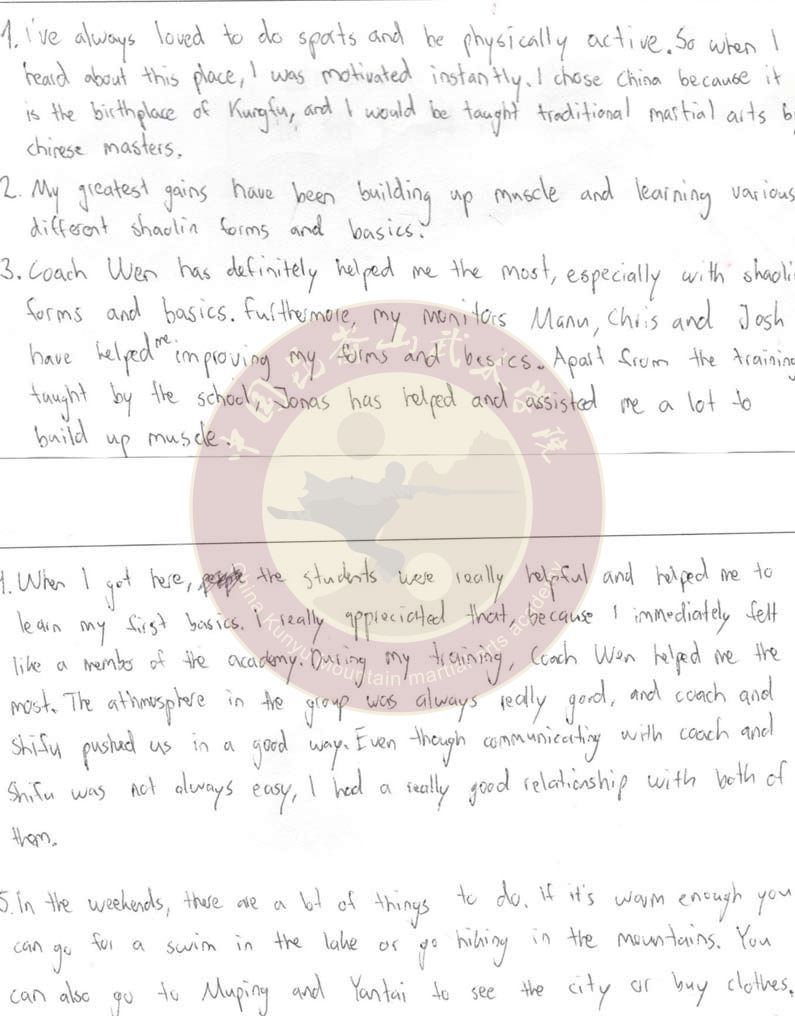 1. I've always loved to do sports and be physically active. So when I
heard about this place, I was motivated instantly. I chose China because it
is the birthplace of Kungfu, and I would be taught traditional martial arts b
chinese masters.
2. My greatest gains have been building up muscle and learning various
different shaolin forms and basics.
3. Coach Wen has definitely helped me the most, especially with shaoli
forms and basics. Furthermore, my monitors Manu, Chris and Josh
have helped me improving my forms and basics. Apart from the training
taught by the school, Jonas has helped and assisted me a lot to
build up muscle.
中国昆嵛山武术学院
4. When I got here, the students were really helpful and helped me to
learn my first basics. I really appreciated that, because I immediately felt
like a member of the academy. During my training, Coach Wen helped me the
most. The athmosphere in the group was always really good, and coach and
Shifu pushed us in a good way. Even though communicating with coach and
Shifu was not always easy, I had a really good relationship with both of
them.
China Kunyu Mountain martial arts academy
5. In the weekends, there are a lot of things to do. if it's warm enough you
can go for a swim in the lake or go hiking in the mountains. You
can also go to Muping and Yantai to see the city or buy clothes.